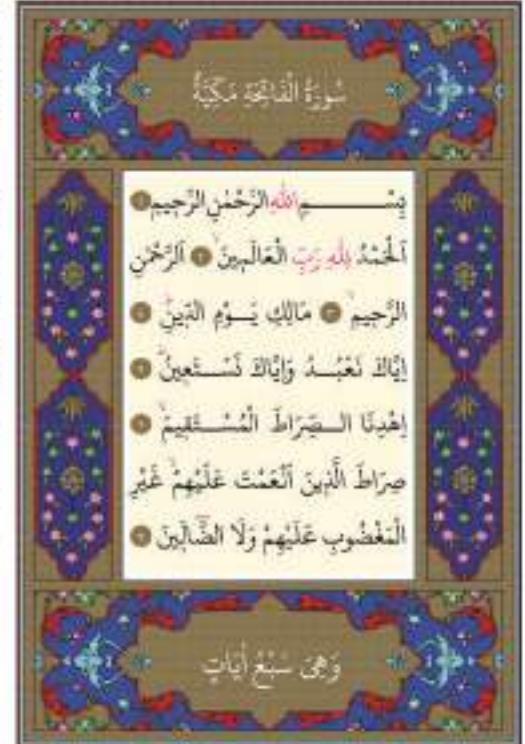 سُورَةُ الْفَاتِحَةِ مَكِّيَّةٌ
بِسْمِ اللّٰهِ الرَّحْمٰنِ الرَّحِيمِ ﴿١﴾
اَلْحَمْدُ لِلّٰهِ رَبِّ الْعَالَمِينَ ﴿٢﴾ اَلرَّحْمٰنِ
الرَّحِيمِ ﴿٣﴾ مَالِكِ يَوْمِ الدِّينِ ﴿٤﴾
اِيَّاكَ نَعْبُدُ وَاِيَّاكَ نَسْتَعِينُ ﴿٥﴾
اِهْدِنَا الصِّرَاطَ الْمُسْتَقِيمَ ﴿٦﴾
صِرَاطَ الَّذِينَ اَنْعَمْتَ عَلَيْهِمْ غَيْرِ
الْمَغْضُوبِ عَلَيْهِمْ وَلَا الضَّالِّينَ ﴿٧﴾
وَهِىَ سَبْعُ اٰيَاتٍ